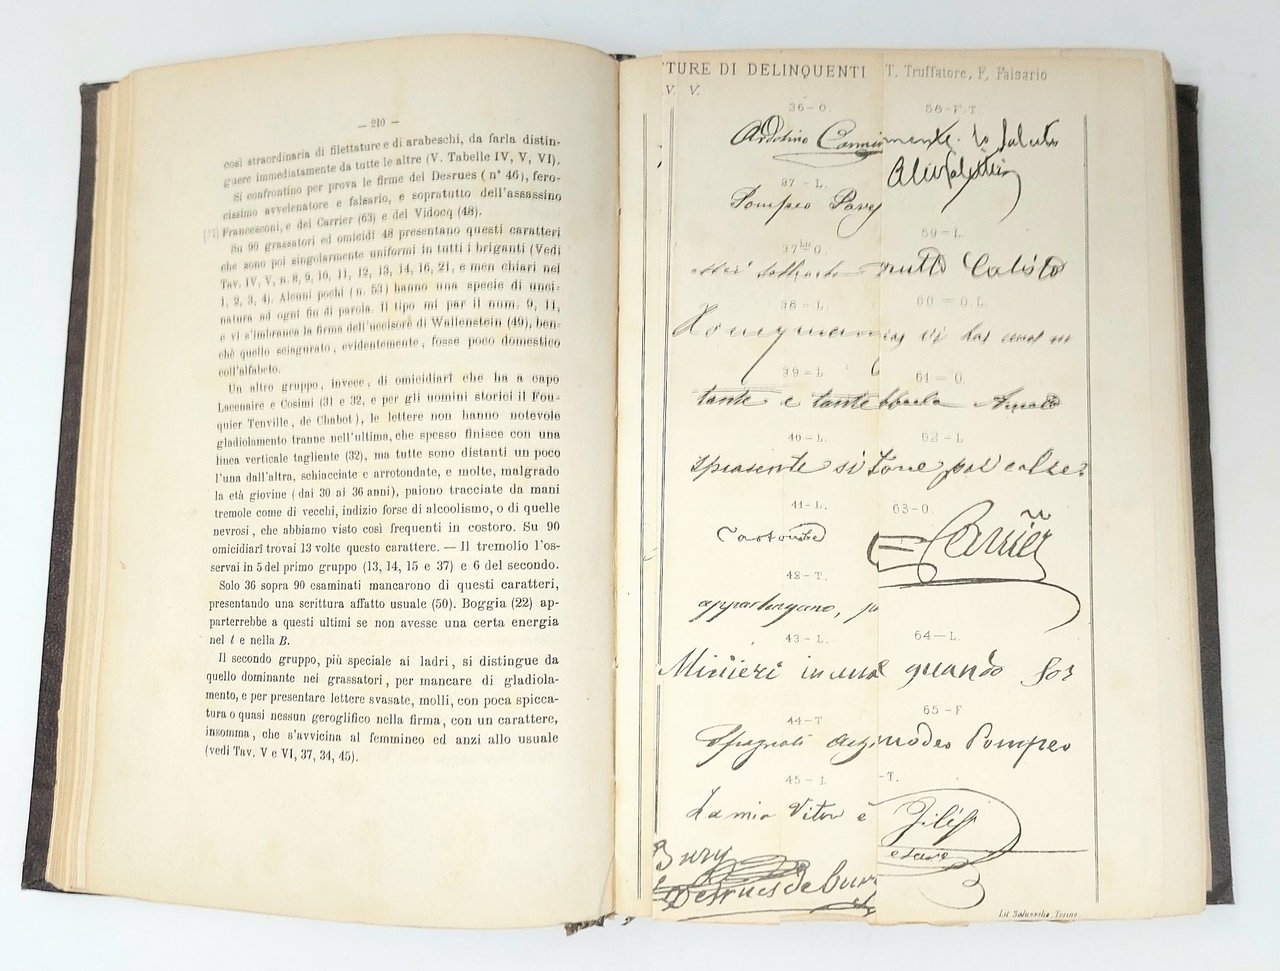 — 210 —
così straordinaria di filettature e di arabeschi, da farla distin-
guere immediatamente da tutte le altre (V. Tabelle IV, V, VI).
Si confrontino per prova le firme del Desrues (n° 46), fero-
cissimo avvelenatore e falsario, e sopratutto dell'assassino
Francesconi, e del Carrier (63) e del Vidocq (48).
Su 90 grassatori ed omicidi 48 presentano questi caratteri
che sono poi singolarmente uniformi in tutti i briganti (Vedi
Tav. IV, V, n. 8, 9, 10, 11, 12, 13, 14, 16, 21, e men chiari nei
1, 2, 3, 4). Alcuni pochi (n. 53) hanno una specie di unci-
natura ad ogni fin di parola. Il tipo mi par il num. 9, 11,
e vi s'imbranca la firma dell'uccisore di Wallenstein (49), ben-
chè quello sciagurato, evidentemente, fosse poco domestico
coll'alfabeto.
Un altro gruppo, invece, di omicidiarî che ha a capo
Lacenaire e Cosimi (31 e 32, e per gli uomini storici il Fou-
quier Tenville, de Chabot), le lettere non hanno notevole
gladiolamento tranne nell'ultima, che spesso finisce con una
linea verticale tagliente (32), ma tutte sono distanti un poco
l'una dall'altra, schiacciate e arrotondate, e molte, malgrado
la età giovine (dai 30 ai 36 anni), paiono tracciate da mani
tremole come di vecchi, indizio forse di alcoolismo, o di quelle
nevrosi, che abbiamo visto così frequenti in costoro. Su 90
omicidiarî trovai 13 volte questo carattere. — Il tremolio l'os-
servai in 5 del primo gruppo (13, 14, 15 e 37) e 6 del secondo.
Solo 36 sopra 90 esaminati mancarono di questi caratteri,
presentando una scrittura affatto usuale (50). Boggia (22) ap-
parterrebbe a questi ultimi se non avesse una certa energia
nel t e nella B.
Il secondo gruppo, più speciale ai ladri, si distingue da
quello dominante nei grassatori, per mancare di gladiola-
mento, e per presentare lettere svasate, molli, con poca spicca-
tura o quasi nessun geroglifico nella firma, con un carattere,
insomma, che s'avvicina al femmineo ed anzi allo usuale
(vedi Tav. V e VI, 37, 34, 45).
TURE DI DELINQUENTI T. Truffatore, F, Falsario
V. V.
36-O.
Ardotino
37 - L.
Pompeo
37 bis O.
38 - L.
39 - L
tante e tante
40 - L.
si
41 - L.
42 - T.
43 - L.
Minieri in
44 - T
45 - L
La mia è
Bury
Desrues de bury
56-F.T.
Saluto
59 - L.
Calisto
60 = O.L.
61 = O.
62 - L
63-O.
Carrier
64 - L.
quando
65 - F
Pompeo
-T.
Lit. Salussolia, Torino